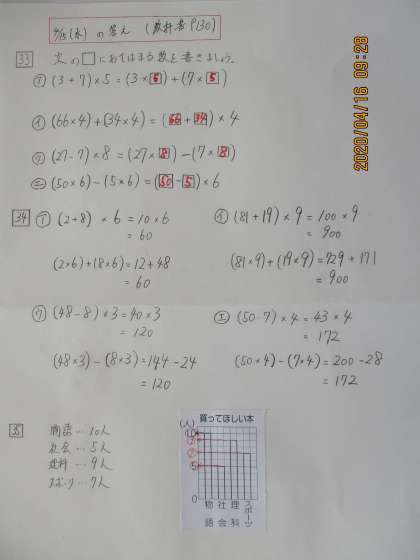 4/15(水)の答え (教科書P130)
33 次の□にあてはまる数を書きましょう。
㋐ (3+7)×5=(3×5)+(7×5)
㋑ (66×4)+(34×4)=(66+34)×4
㋒ (27-7)×8=(27×8)-(7×8)
㋓ (50×6)-(5×6)=(50-5)×6
34 ㋐ (2+8)×6=10×6
=60
(2×6)+(8×6)=12+48
=60
㋑ (81+19)×9=100×9
=900
(81×9)+(19×9)=729+171
=900
㋒ (48-8)×3=40×3
=120
(48×3)-(8×3)=144-24
=120
㋓ (50-7)×4=43×4
=172
(50×4)-(7×4)=200-28
=172
35 物語…10人
社会…5人
理科…9人
スポーツ…7人
買ってほしい本
(人)
10
5
0
物語
社会
理科
スポーツ
2020/04/16 09:28